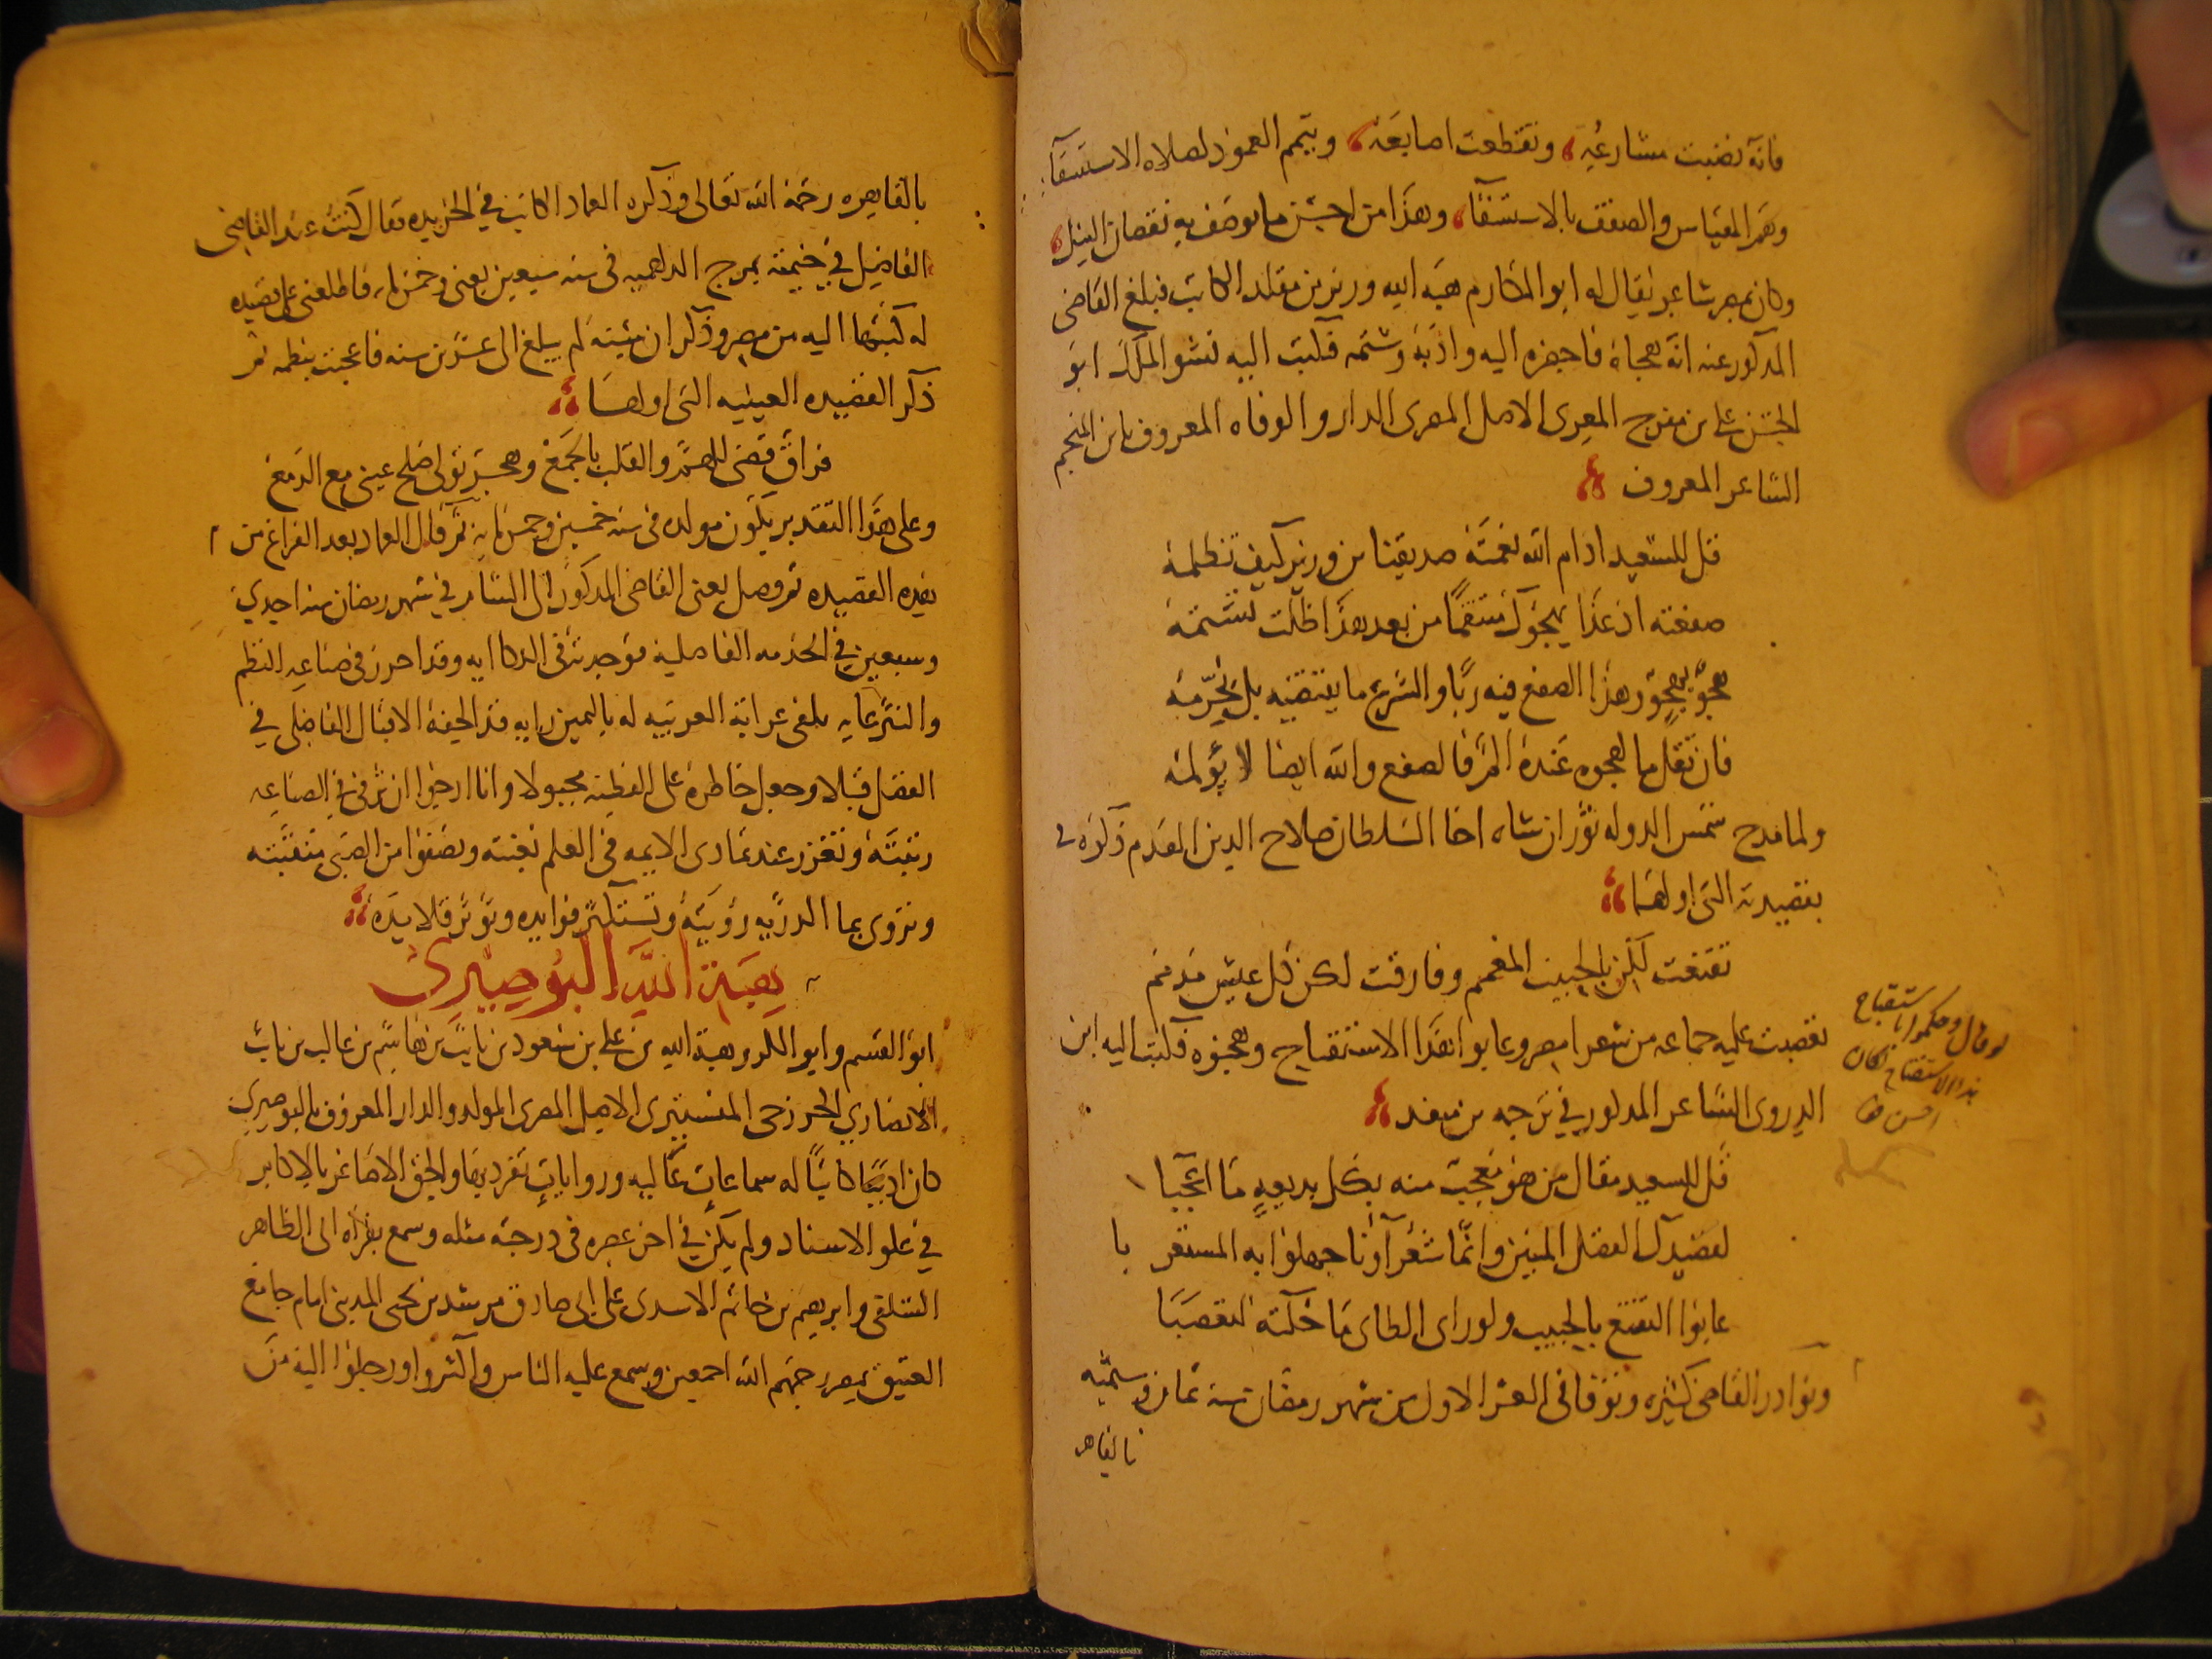 فانه نضبت مشارعه، وتقطعت اصابعه، وتيمم العمود لصلاه الاستسقآ
وهم المقياس من الضعف بالاستسقآ، وهذا من احسن ما يوصف به نقصان النيل،
وكان بمصر شاعر يقال له ابو المكارم هبه الله بن وزير بن مقلد الكاتب فبلغ القاضى
المذكور عنه انه هجاه فاحضره اليه وادبه وشتمه فكتب اليه نشو الملك ابو
الحسن على بن مفرج المعرى الاصل المصرى الدار والوفاه المعروف بابن المنجم
الشاعر المعروف
قل للسعيد ادام الله نعمته صديقنا بن وزير كيف تظلمه
صفعته اذ غدا يهجوك منتقما من بعد هذا ظلت تشتمه
هجو بهجو وهذا الصفع فيه ربا والشرع ما يقتضيه بل يحرمه
فان تقل ما لهجوه عنده الم فالصفع والله ايضا لا يؤلمه
ولما مدح شمس الدوله توران شاه اخا السلطان صلاح الدين المقدم ذكره فى
بقصيدته التى اولها
تقنعت لكن بالحبيب المعمم وفارقت لكن كل عيش مذمم
تعصبت عليه جماعه من شعرا مصر وعابوا هذا الاستفتاح وهجنوه فكتب اليه ابن
الدروى الشاعر المذكور فى ترجمه بن منقذ
قل للسعيد مقال من هو معجب منه بكل بديعه ما اعجبا
لقصيدك الفضل المبين وانما شعرآؤنا جهلوا به المستغر با
عابوا التقنع بالحبيب ولو راى الطاى ما حكته لتعصبا
ونوادر القاضى كثيره وتوفا فى العشر الاول من شهر رمضان سنه ثمان وستميه
بالقاهر
لو قال وحكموا باستقباح
هذا الاستفتاح لكان
احسن
بالقاهره رحمه الله تعالى وذكره العماد الكاتب فى الخريده فقال كنت عند القاضى
الفاضل فى خيمته بمرج الدلهميه فى سنه سبعين يعنى وخمس مايه فاطلعنى على قصيده
له كتبها اليه من مصر وذكر ان سنه لم يبلغ الى عشرين سنه فاعجبت بنظمه ثم
ذكر القصيده العينيه التى اولها
فراق قضى للهم والقلب بالجمع وهجر تولى صلح عينى مع الدمع
وعلى هذا التقدير يكون مولده فى سنه خمسين وخمس مايه ثم قال العماد بعد الفراغ من
هذه القصيده ثم وصل يعنى القاضى المذكور الى الشام فى شهر رمضان سنه احدى
وسبعين فى الخدمه الفاضليه فوجدته فى الذكا ايه وقد احرز فى صناعه النظم
والنثر غايه يلقى عرابة العربيه له باليمين رايه قد الحفه الاقبال الفاضلى فى
الفضل قبلا وجعل خاطره على الفطنه مجبولا وانا ارجوا ان ترقى فى الصناعه
رتبته وتغزر عند تمادى الايمه فى العلم نغبته وتصفوا من الصبى منقبته
وتروى بما الدربه رؤيته وتستكثر فوايده وتؤثر قلايده
هبة الله البوصيرى
ابو القسم وابو الكرم هبة الله بن على بن مسعود بن ثابت بن هاشم بن غالب بن ثابت
الانصارى الخزرجى المنستيرى الاصل المصرى المولد والدار المعروف بالبوصيرى
كان اديبا كاتبا له سماعات عاليه وروايات تفرد بها والحق الاصاغر بالاكابر
فى علو الاسناد ولم يكن فى اخر عصره فى درجة مثله وسمع بقراه الى الطاهر
السلفى وابرهيم بن حاتم الاسدى على ابى صادق مرشد بن يحيى المدينى امام جامع
العتيق بمصر رحمهم الله اجمعين وسمع عليه الناس واكثروا ورحلوا اليه من